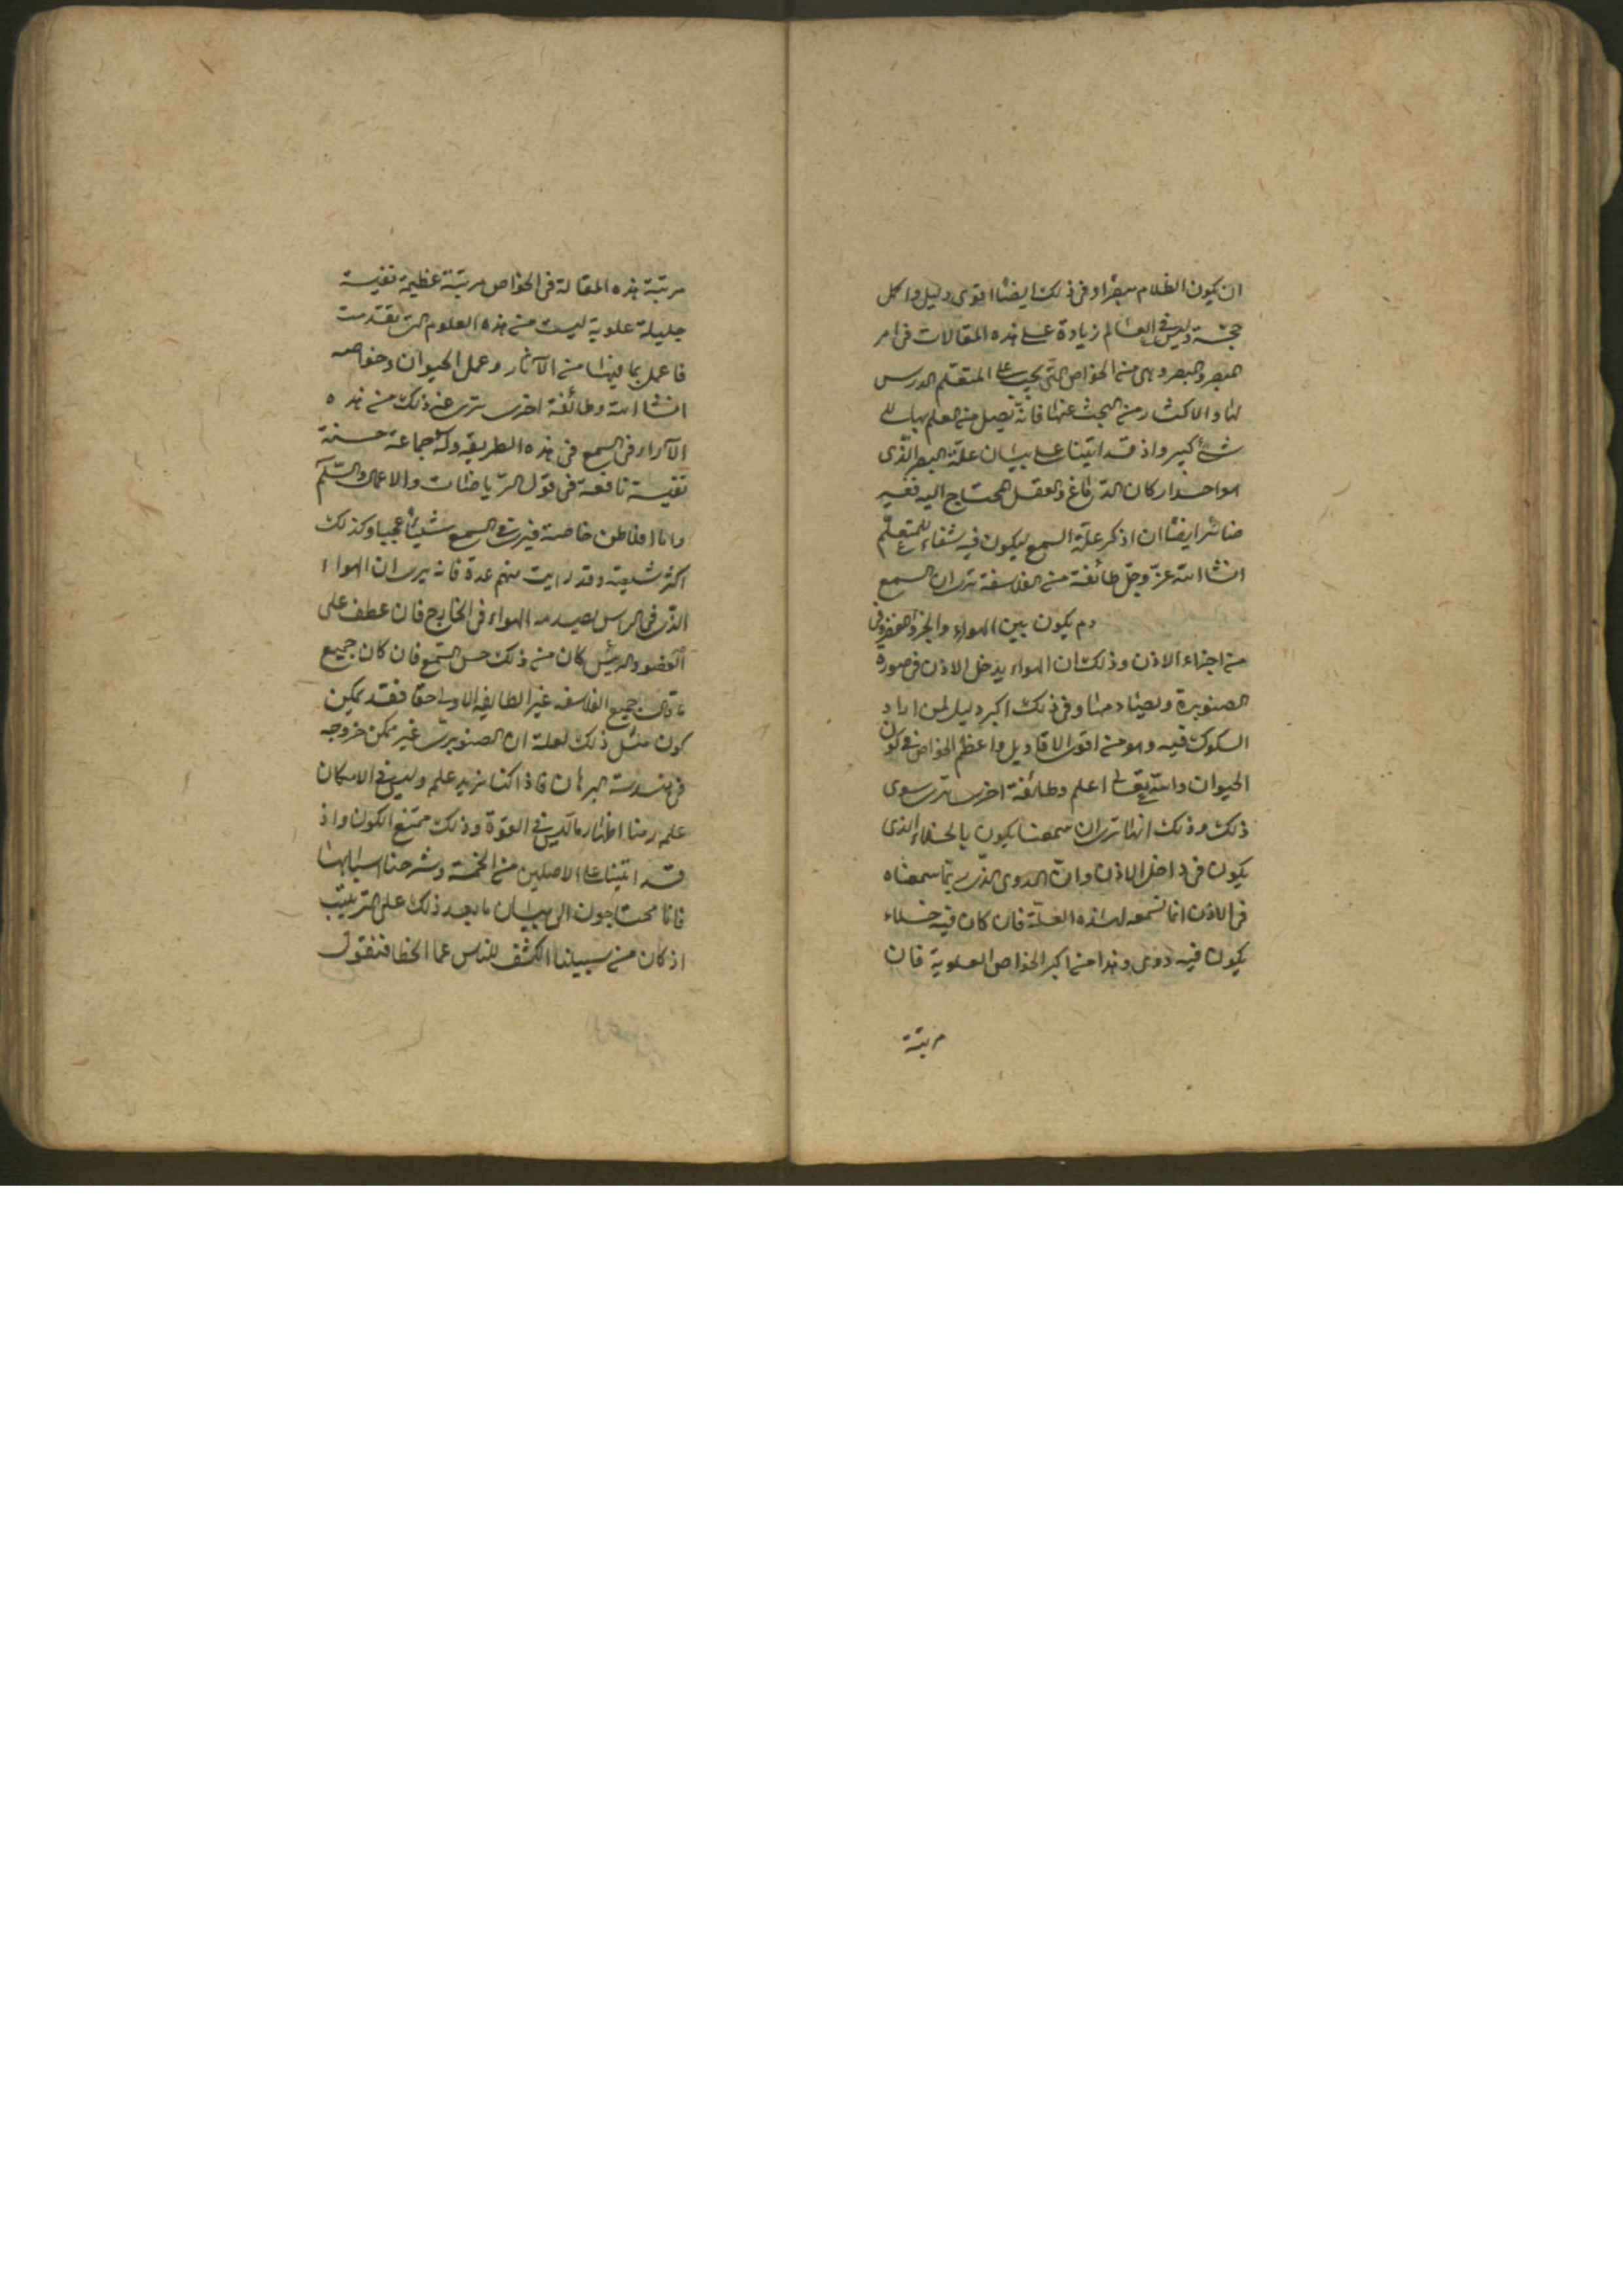 ان يكون الظلام مبصرا وفى ذلك ايضا اقوى دليل واكل
حجة وليس فى العالم زيادة على هذه المقالات فى امر
المبصر والبصر وهى من الخواص التى يجب على المتعلم الدرس
لها والاكثار من البحث عنها فانه يصل من العلم بها الى
شئ كبير واذ قد اتينا على بيان علة البصر الذى
هو احد اركان الدماغ والعقل المحتاج اليه فغير
ضائر ايضا ان اذكر علة السمع ليكون فيه شفاء للمتعلم
انشا الله عز وجل طائفة من الفلاسفة ترى ان السمع
دم يكون بين الهواء والجزء الغضروفى
من اجزاء الاذن وذلك ان الهواء يدخل الاذن فى صورة
الصنوبرة ولصيا دمنا وفى ذلك اكبر دليل لمن اراد
السكوك فيه وهو من اقوى الاقاويل واعظم الخواص فى كون
الحيوان والله تعالى اعلم وطائفة اخرى ترى سوى
ذلك وذلك انها ترى ان سمعنا يكون بالخلاء الذى
يكون فى داخل الاذن وان الدوى الذى ربما سمعناه
فى الاذن انما نسمعه لهذه العلة فان كان فيه خلاء
يكون فيه دوى وهذا من اكبر الخواص العلوية فان
مرتبة
مرتبة هذه المقالة فى الخواص مرتبة عظيمة نفيسة
جليلة علوية ليست من هذه العلوم التى تقدمت
فاعمل بما فيها من الآثار وعمل الحيوان وخواصه
انشا الله وطائفة اخرى ترى غير ذلك من هذه
الآراء فى السمع فى هذه الطريقة وله جماعة حسنة
نفيسة نافعة فى قول الرياضات والاعمال والسلم
واما افلاطن خاصة فيرى فى السمع شيئا عجيبا وكذلك
اكثر شيعته وقد رايت منهم عدة فانه يرى ان الهواء
الذى فى الراس يصدمه الهواء فى الخارج فان عطف على
العضو الرئيس كان من ذلك حس السمع فان كان جميع
ما قالت جميع الفلاسفه غير الطايفه الاولى حقا فقد يمكن
كون مثل ذلك لعلة ان الصنوبرى غير ممكن خروجه
فى هندسة البرهان فاذا كنا نريد علم وليس فى الامكان
علمه رمنا اظهار ما ليس فى القوة وذلك ممتنع الكون واذ
قد اتينا على الاصلين من الخمسة وشرحنا اسبابها
فانا محتاجون الى بيان ما بعد ذلك على الترتيب
اذ كان من سبيلنا الكشف للناس عما الخطا فنقول